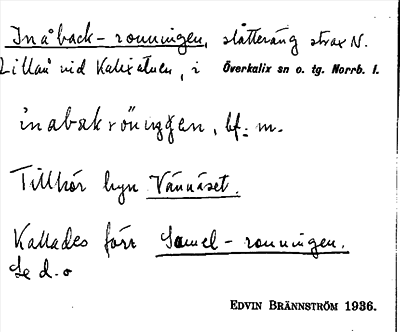 Inåback-ronningen, slåtteräng strax N.
Lillån vid Kalixälven, i Överkalix sn o. tg. Norrb. l.
inabakrönıŋgen, bf. m.
Tillhör byn Vännäset.
Kallades förr Samel-ronningen.
Se d. o
EDVIN BRÄNNSTRÖM 1936.